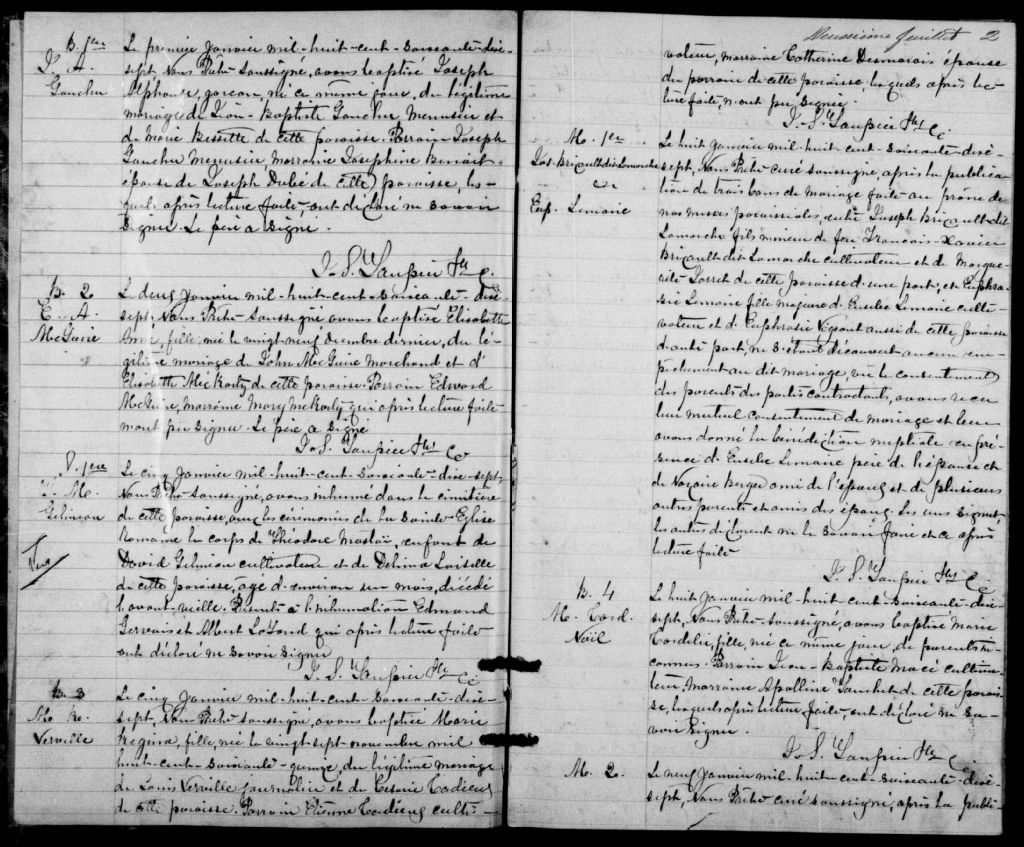 B. 1ere
J. A.
Gaucher
Le premier Janvier mil-huit-cent-soixante-dix-
sept, Nous Prêtre soussigné, avons baptisé Joseph
Alphonse, garçon, né ce même jour, du légitime
mariage de Jean-Baptiste Gaucher Menuisier et
de Marie Bissette de cette paroisse. Parrain Joseph
Gaucher Menuisier marraine Josephine Benoit
épouse de Joseph Dubé de cette paroisse, les-
quels après lecture faite, ont déclaré ne savoir
signer. Le père a signé.
J. S. Taupier Ptre C.
B. 2
E. A.
McGuire
Le deux Janvier mil-huit-cent-soixante-dix-
sept, Nous Prêtre soussigné, avons baptisé Elisabeth
fille, née le vingt-neuf décembre dernier, du lé-
gitime mariage de John McGuire Marchand et d'
Elisabeth McKarty de cette paroisse. Parrain Edward
McGuire, marraine Mary McKarty qui après lecture faite
n'ont pu signer. Le père a signé
J. S. Taupier Ptre C.
S. 1ere
T. M.
Gelineau
Le cinq Janvier mil-huit-cent-soixante-dix-sept,
Nous Prêtre soussigné, avons inhumé dans le cimetière
de cette paroisse, avec les cérémonies de la Sainte Eglise
Romaine le corps de Théodore enfant de
David Gelineau cultivateur et de Delima Loiselle
de cette paroisse, agé d'environ mois, décédé
l'avant-veille. Présents à l'inhumation Edmond
Gervais et Albert qui après lecture faite
ont déclaré ne savoir signer
J. S. Taupier Ptre C.
B. 3
M. R.
Verville
Le cinq Janvier mil-huit-cent-soixante-dix-
sept, Nous Prêtre soussigné, avons baptisé Marie
Regina, fille, née le vingt-sept novembre mil
huit-cent-soixante- du légitime mariage
de Louis Verville journalier et de Cadieux
de cette paroisse. Parrain Etienne Cadieux culti-
Deuxième feuillet 2
vateur, marraine Catherine Desmarais épouse
du parrain de cette paroisse, lesquels après lec-
ture faite, n'ont pu signer.
J. S. Taupier Ptre C.
M. 1er
Jos. Bricault dit Lamarche
&
Euph. Lemoine
Le huit Janvier mil-huit-cent-soixante-dix-
sept, Nous Prêtre curé soussigné, après la publica-
tion de trois bans de mariage faite au prône de
nos messes paroissiales, entre Joseph Bricault dit
Lamarche fils mineur de feu Francois-Xavier
Bricault dit Lamarche cultivateur et de Margue-
rite de cette paroisse d'une part, et Euphra-
sie Lemoine fille majeure d'Eusèbe Lemoine culti-
vateur et d'Euphrosie aussi de cette paroisse
d'autre part, ne s'étant découvert aucun em-
pêchement au dit mariage, vu le consentement
des parents des parties contractants, avons reçu
leur mutuel consentement de mariage et leur
avons donné la bénédiction nuptiale en pré-
sence d'Eusèbe Lemoine père de l'épouse et
de Nazaire Berger ami de l'époux et de plusieurs
autres parents et amis des époux. Les uns signent,
les autres déclarent ne le savoir faire et ce après
lecture faite
J. S. Taupier Ptre C.
B. 4
M. Cord.
Noël
Le huit Janvier mil-huit-cent-soixante-dix-
sept, Nous Prêtre soussigné, avons baptisé Marie
Cordelie, fille, née ce même jour, de parents in-
connus. Parrain Jean-Baptiste Macé cultiva-
teur, Marraine Apolline de cette parois-
se, lesquels après lecture faite, ont déclaré ne sa-
voir signer.
J. S. Taupier Ptre C.
M. 2.
Le neuf Janvier mil-huit-cent-soixante-dix-
sept, Nous Prêtre curé soussigné, après la publi-